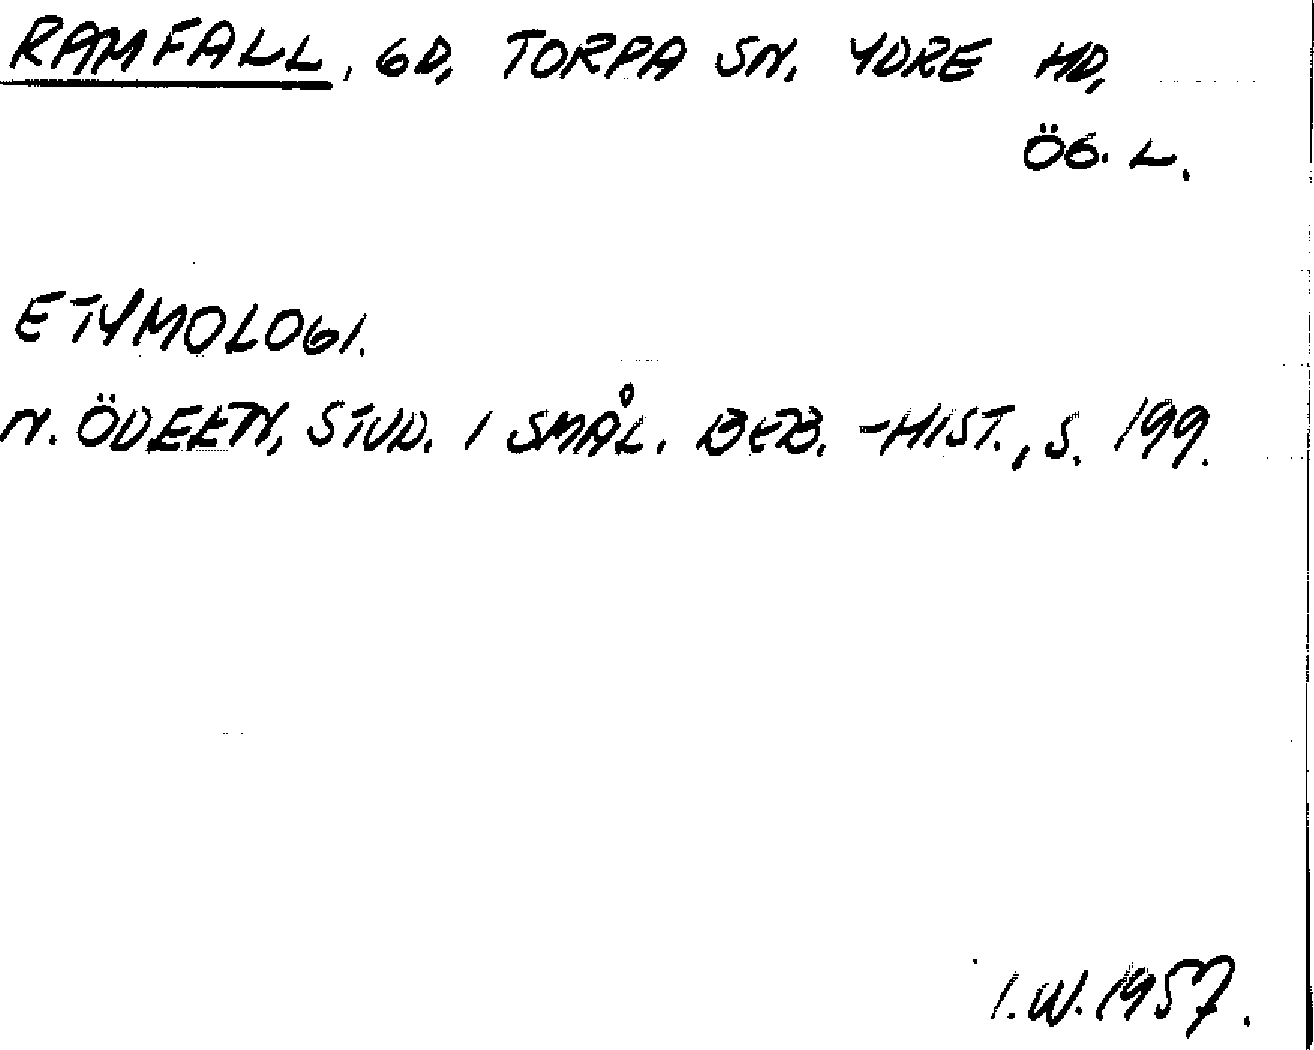 RAMFALL, GD, TORPA SN. YDRE HD,
ÖG. L.
ETYMOLOGI.
N. ÖDEEN, STUD. I SMÅL. BEB. -HIST., S. 199.
I.W. 1957.